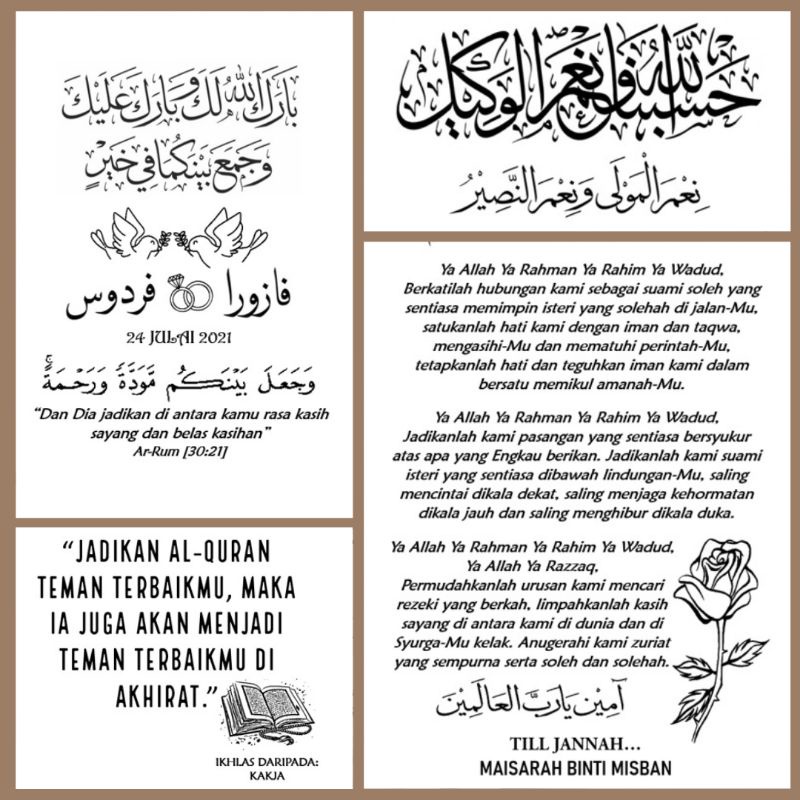 بَارَكَ اللهُ لَكَ وَبَارَكَ عَلَيْكَ
وَجَمَعَ بَيْنَكُمَا فِي خَيْرٍ
فازورا فردوس
24 JULAI 2021
وَجَعَلَ بَيْنَكُم مَّوَدَّةً وَرَحْمَةً ۚ
“Dan Dia jadikan di antara kamu rasa kasih
sayang dan belas kasihan”
Ar-Rum [30:21]
“JADIKAN AL-QURAN
TEMAN TERBAIKMU, MAKA
IA JUGA AKAN MENJADI
TEMAN TERBAIKMU DI
AKHIRAT.”
IKHLAS DARIPADA:
KAKJA
حَسْبُنَا اللهُ وَنِعْمَ الْوَكِيْلُ
نِعْمَ الْمَوْلَى وَنِعْمَ النَّصِيْرُ
Ya Allah Ya Rahman Ya Rahim Ya Wadud,
Berkatilah hubungan kami sebagai suami soleh yang
sentiasa memimpin isteri yang solehah di jalan-Mu,
satukanlah hati kami dengan iman dan taqwa,
mengasihi-Mu dan mematuhi perintah-Mu,
tetapkanlah hati dan teguhkan iman kami dalam
bersatu memikul amanah-Mu.
Ya Allah Ya Rahman Ya Rahim Ya Wadud,
Jadikanlah kami pasangan yang sentiasa bersyukur
atas apa yang Engkau berikan. Jadikanlah kami suami
isteri yang sentiasa dibawah lindungan-Mu, saling
mencintai dikala dekat, saling menjaga kehormatan
dikala jauh dan saling menghibur dikala duka.
Ya Allah Ya Rahman Ya Rahim Ya Wadud,
Ya Allah Ya Razzaq,
Permudahkanlah urusan kami mencari
rezeki yang berkah, limpahkanlah kasih
sayang di antara kami di dunia dan di
Syurga-Mu kelak. Anugerahi kami zuriat
yang sempurna serta soleh dan solehah.
آمِيْن يَارَبَّ الْعَالَمِيْنَ
TILL JANNAH...
MAISARAH BINTI MISBAN